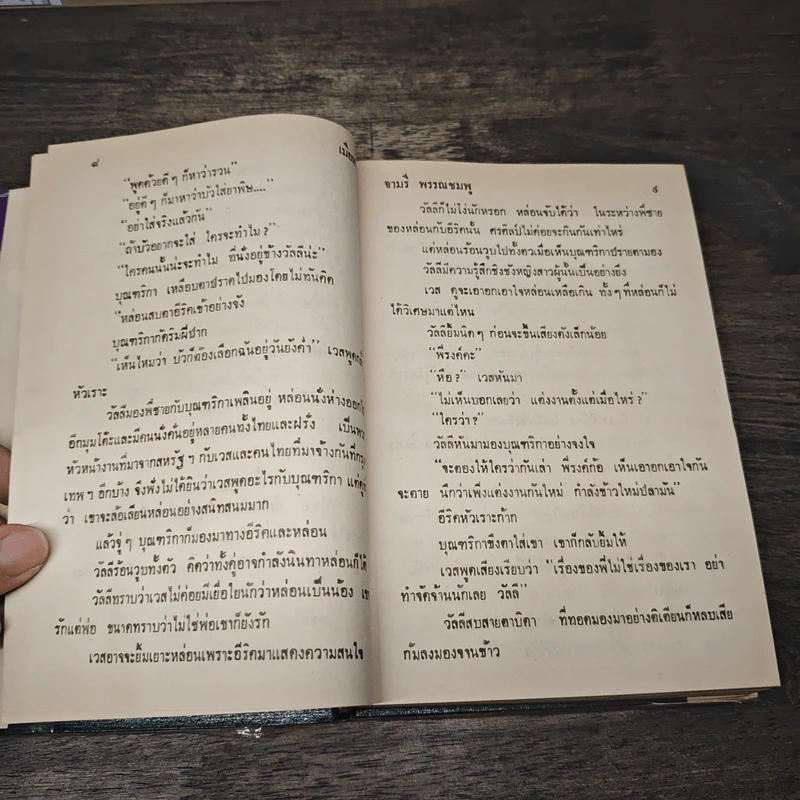 ๘
เมีย
"พูดด้วยดีๆ ก็หาว่ารวน"
"อยู่ดีๆ ก็มาหาว่าบัวใส่ยาพิษ...."
"อย่าใส่จริงแล้วกัน"
"ถ้าบัวอยากจะใส่ ใครจะทำไม?"
"ใครคนนั้นน่ะจะทำไม ที่นั่งอยู่ข้างวัลลีน่ะ"
บุณฑริกา เหลือบตาปราดไปมองโดยไม่ทันคิด
"หล่อนสบตาอีริคเข้าอย่างจัง
บุณฑริกากัดริมฝีปาก
"เห็นไหมว่า บัวก็ต้องเลือกฉันอยู่วันยังค่ำ" เวสพูดกลั้ว
หัวเราะ
วัลลีมองพี่ชายกับบุณฑริกาเพลินอยู่ หล่อนนั่งห่างออกไป
อีกมุมโต๊ะและมีคนนั่งคั่นอยู่หลายคนทั้งไทยและฝรั่ง เป็นพวก
หัวหน้างานที่มาจากสหรัฐฯ กับเวสและคนไทยที่มาจ้างกันที่กรุง
เทพฯ อีกบ้าง จึงฟังไม่ได้ยินว่าเวสพูดอะไรกับบุณฑริกา แต่ดู
ว่า เขาจะล้อเลียนหล่อนอย่างสนิทสนมมาก
แล้วจู่ๆ บุณฑริกาก็มองมาทางอีริคและหล่อน
วัลลีร้อนวูบทั้งตัว คิดว่าทั้งคู่อาจกำลังนินทาหล่อนก็ได้
วัลลีทราบว่าเวสไม่ค่อยมีเยื่อใยนักว่าหล่อนเป็นน้อง
รักแต่พ่อ ขนาดทราบว่าไม่ใช่พ่อเขาก็ยังรัก
เวสอาจจะยิ้มเยาะหล่อนเพราะอีริคมาแสดงความสนใจ
จามรี พรรณชมพู
๙
วัลลีก็ไม่โง่นักหรอก หล่อนจับได้ว่า ในระหว่างพี่ชาย
ของหล่อนกับอีริคนั้น ศรศิลป์ไม่ค่อยจะกินกันเท่าไหร่
แต่หล่อนร้อนวูบไปทั้งตัวเมื่อเห็นบุณฑริกาปรายตามอง
วัลลีมีความรู้สึกชิงชังหญิงสาวผู้นั้นเป็นอย่างยิ่ง
เวส ดูจะเอาอกเอาใจหล่อนเหลือเกิน ทั้งๆ ที่หล่อนก็ไม่
ได้วิเศษมาแต่ไหน
วัลลียิ้มนิดๆ ก่อนจะขึ้นเสียงดังเล็กน้อย
"พี่รงค์คะ"
"หือ?" เวสหันมา
"ไม่เห็นบอกเลยว่า แต่งงานตั้งแต่เมื่อไหร่?"
"ใครว่า?"
วัลลีหันมามองบุณฑริกาอย่างจงใจ
"จะต้องให้ใครว่ากันเล่า พี่รงค์ก้อ เห็นเอาอกเอาใจกัน
จะตาย นึกว่าเพิ่งแต่งงานกันใหม่ กำลังข้าวใหม่ปลามัน"
อีริคหัวเราะก้าก
บุณฑริกาขึงตาใส่เขา เขาก็กลับยิ้มให้
เวสพูดเสียงเรียบว่า "เรื่องของพี่ไม่ใช่เรื่องของเรา อย่า
ทำจัดจ้านนักเลย วัลลี"
วัลลีสบสายตาบิดา ที่ทอดมองมาอย่างติเตียนก็หลบเสีย
ก้มลงมองจานข้าว